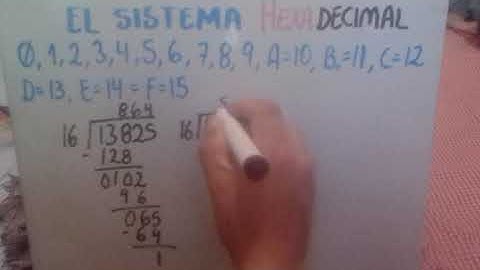 EL SISTEMA HEXADECIMAL
0,1,2,3,4,5,6,7,8,9,A=10,B=11,C=12
D=13, E=14 = F=15
864
16 13825
-128
0102
96
065
-64
1
16